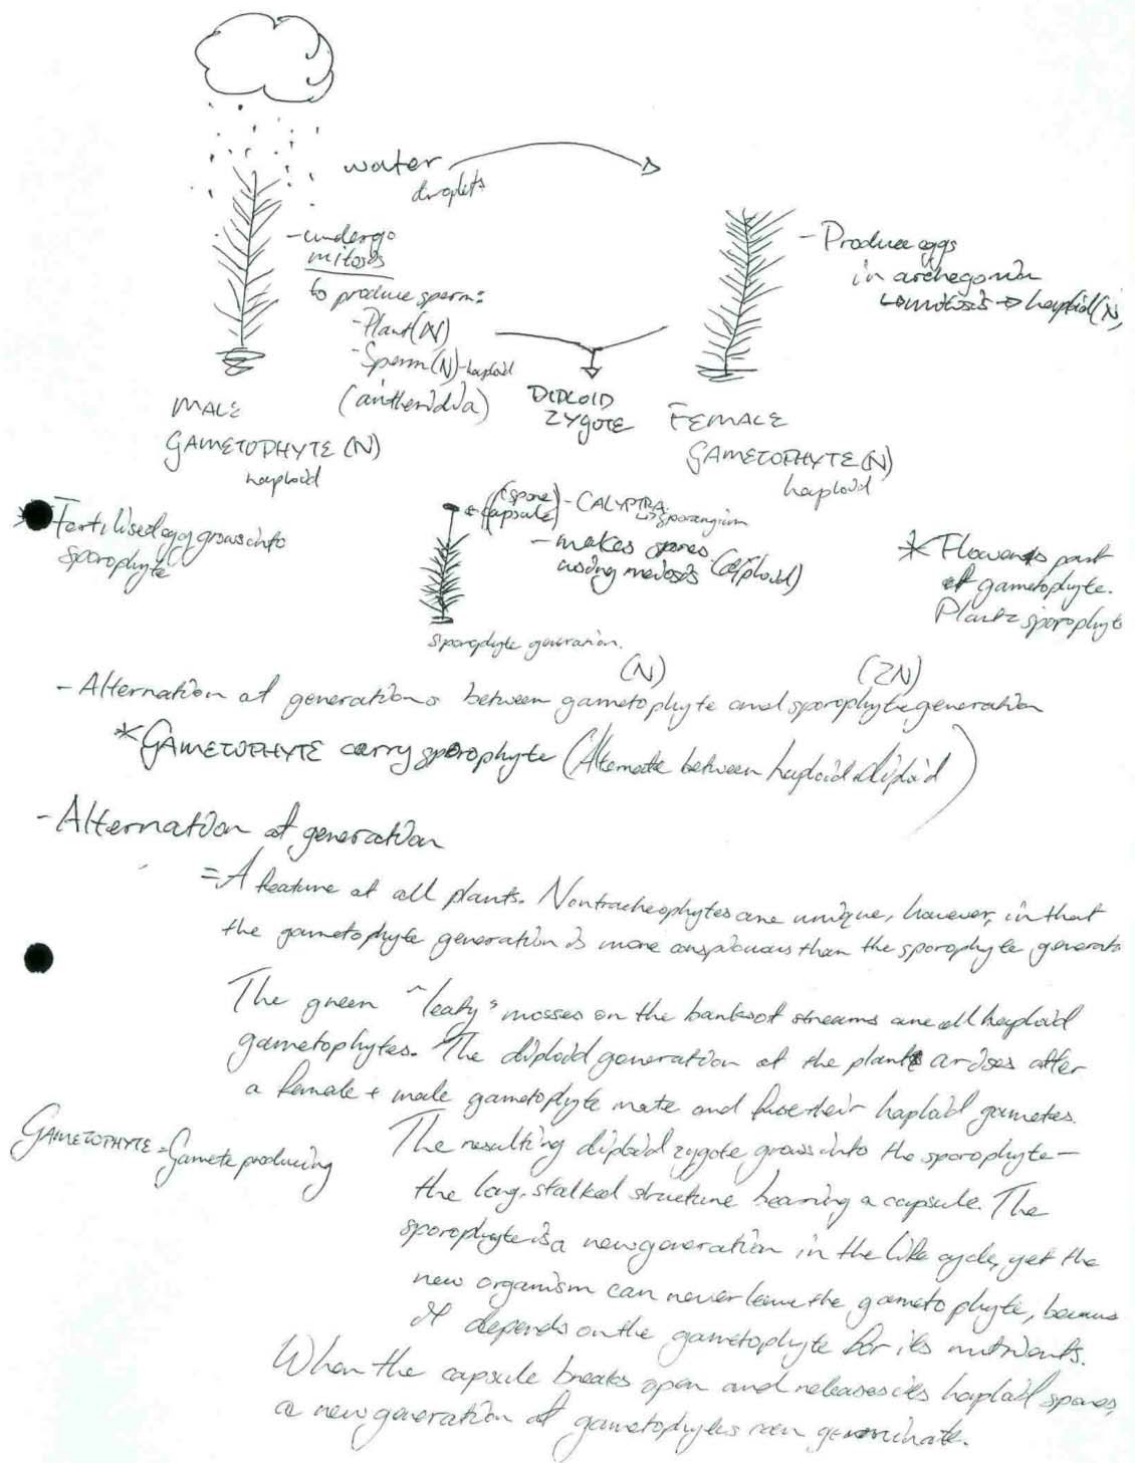 water
droplets
-undergo
mitosis
to produce sperm:
-Plant (N)
-Sperm (N)-haploid
(antheridia)
MALE
GAMETOPHYTE (N)
haploid
DIPLOID
ZYGOTE
-Produce eggs
in archegonia
↳mitosis → haploid (N)
FEMALE
GAMETOPHYTE (N)
haploid
* Fertilised egg grows into
sporophyte
(spore) - CALYPTRA
capsule) ↳ sporangium
- makes spores
using meiosis (diploid)
sporophyte generation.
* Flower is part
of gametophyte.
Plant = sporophyt
(N) (2N)
- Alternation of generations between gametophyte and sporophyte generation
* GAMETOPHYTE carry sporophyte (Alternate between haploid diploid)
- Alternation of generation
= A feature of all plants. Nontracheophytes are unique, however, in that
the gametophyte generation is more conspicuous than the sporophyte generati
The green "leafy" mosses on the banks of streams are all haploid
gametophytes. The diploid generation of the plant arises after
a female + male gametophyte mate and fuse their haploid gametes.
GAMETOPHYTE = Gamete producing
The resulting diploid zygote grows into the sporophyte—
the long, stalked structure bearing a capsule. The
sporophyte is a new generation in the life cycle, yet the
new organism can never leave the gametophyte, becaus
it depends on the gametophyte for its nutrients.
When the capsule breaks open and releases its haploid spores,
a new generation of gametophytes can germinate.